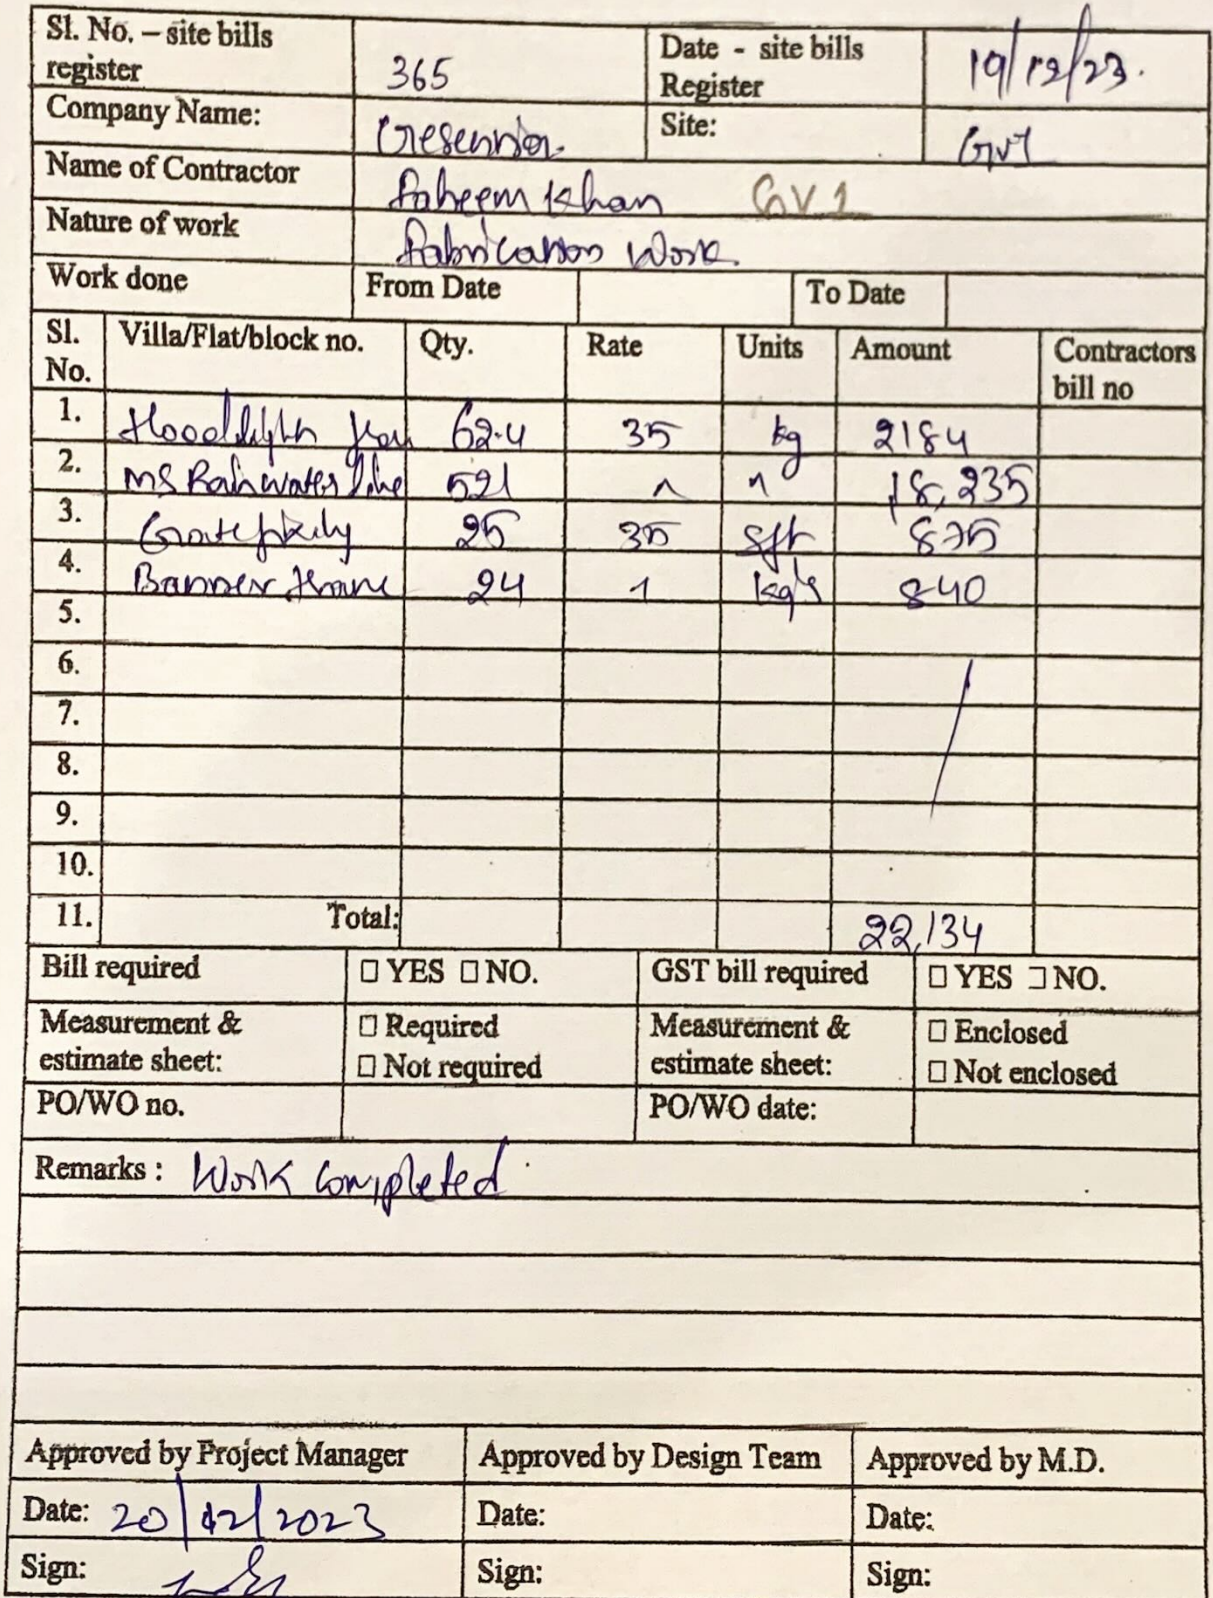 Sl. No. – site bills register 365 Date - site bills Register 19/12/23.
Company Name: Site: GV1
Name of Contractor Faheem Khan GV1
Nature of work Fabrication Work.
Work done From Date To Date
Sl. No. Villa/Flat/block no. Qty. Rate Units Amount Contractors bill no
1. 62.4 35 kg 2184
2. MS Rainwater line 521 " " 18,235
3. 25 35 sft 875
4. Banner frame 24 kg's 840
5.
6.
7.
8.
9.
10.
11. Total: 22,134
Bill required ☐ YES ☐ NO. GST bill required ☐ YES ☐ NO.
Measurement & estimate sheet: ☐ Required ☐ Not required Measurement & estimate sheet: ☐ Enclosed ☐ Not enclosed
PO/WO no. PO/WO date:
Remarks : Work completed
Approved by Project Manager Approved by Design Team Approved by M.D.
Date: 20/12/2023 Date: Date:
Sign: Sign: Sign: